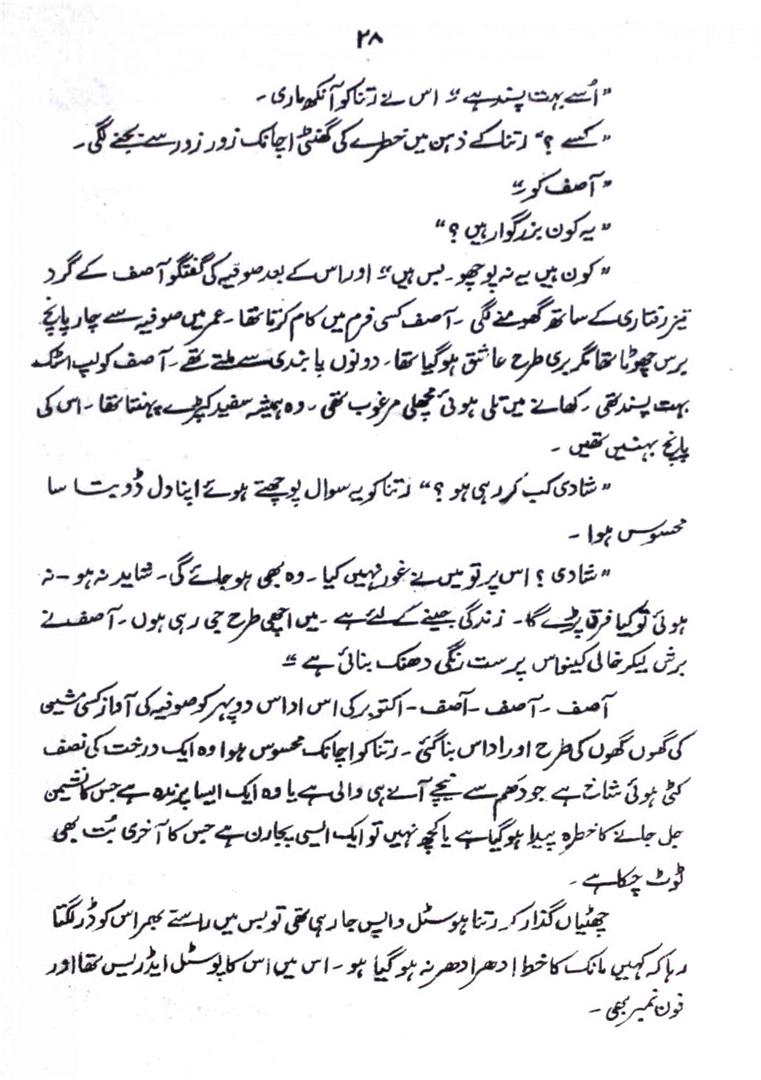 ۲۸
”اُسے بہت پسند ہے“ اس نے رتنا کو آنکھ ماری ۔
”کسے ؟“ رتنا کے ذہن میں خطرے کی گھنٹی اچانک زور زور سے بجنے لگی ۔
”آصف کو“
”یہ کون بزرگوار ہیں ؟“
”کون ہیں یہ نہ پوچھو ۔ بس ہیں“ اور اس کے بعد صوفیہ کی گفتگو آصف کے گرد
تیز رفتاری کے ساتھ گھومنے لگی ۔ آصف کسی فرم میں کام کرتا تھا ۔ عمر میں صوفیہ سے چار پانچ
برس چھوٹا تھا مگر بری طرح عاشق ہوگیا تھا ۔ دونوں پابندی سے ملتے تھے ۔ آصف کو لپ اسٹک
بہت پسند تھی ۔ کھانے میں تلی ہوئی مچھلی مرغوب تھی ۔ وہ ہمیشہ سفید کپڑے پہنتا تھا ۔ اس کی
پانچ بہنیں تھیں ۔
”شادی کب کر رہی ہو ؟“ رتنا کو یہ سوال پوچھتے ہوئے اپنا دل ڈوبتا سا
محسوس ہوا ۔
”شادی ؟ اس پر تو میں نے غور نہیں کیا ۔ وہ بھی ہو جائے گی ۔ شاید نہ ہو – نہ
ہوئی تو کیا فرق پڑے گا ۔ زندگی جینے کے لئے ہے ۔ میں اچھی طرح جی رہی ہوں ۔ آصف نے
برش لیکر خالی کینواس پر ست رنگی دھنک بنائی ہے“
آصف ۔ آصف ۔ آصف ۔ اکتوبر کی اس اداس دوپہر کو صوفیہ کی آواز کسی مشین
کی گھوں گھوں کی طرح اور اداس بنا گئی ۔ رتنا کو اچانک محسوس ہوا وہ ایک درخت کی نصف
کٹی ہوئی شاخ ہے جو دھم سے نیچے آنے ہی والی ہے یا وہ ایک ایسا پرندہ ہے جس کا نشیمن
جل جانے کا خطرہ پیدا ہوگیا ہے یا کچھ نہیں تو ایک ایسی پجارن ہے جس کا آخری بُت بھی
ٹوٹ چکا ہے ۔
چھٹیاں گذار کر رتنا ہوسٹل واپس جا رہی تھی تو بس میں راستے بھر اس کو ڈر لگتا
رہا کہ کہیں مانک کا خط اِدھر ادھر نہ ہو گیا ہو ۔ اس میں اس کا پوسٹل ایڈریس تھا اور
فون نمبر بھی ۔